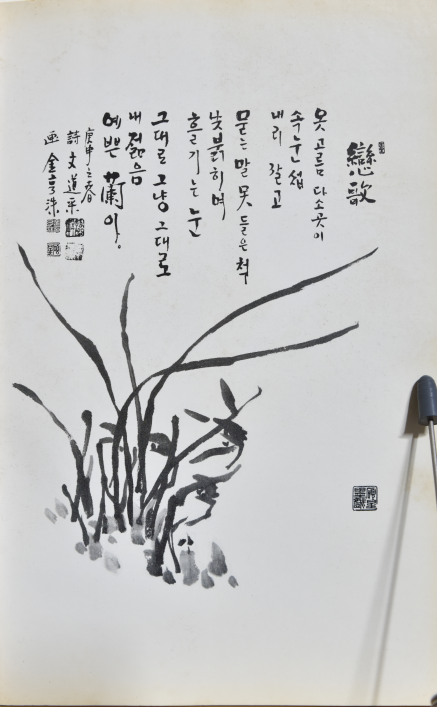 戀歌
옷고름 다소곳이
속눈썹
내리 깔고
묻는 말 못 들은 척
낯붉히며
흘기는 눈
그대로 그냥 그대로
내 젊음
예쁜 蘭아.
庚申之春
詩 文道采
画 金亨洙